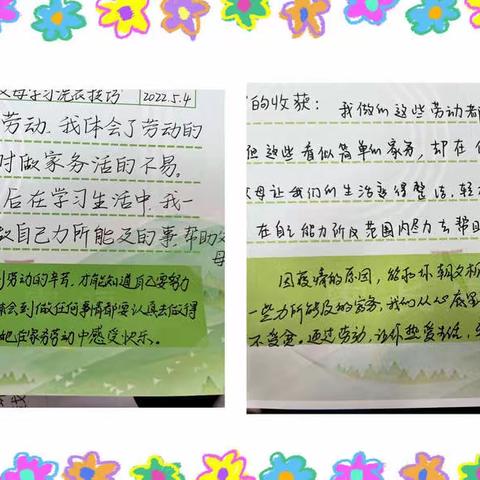 父母学习洗衣技巧 2022.5.4
劳动.我体会了劳动的
时做家务活的不易。
后在学习生活中.我一
自己力所能及的事.帮助父
母
劳动的辛苦.才能知道自己要努力
体会到做任何事情都要认真去做得
他在家务劳动中感受快乐。
的收获:我做的这些劳动都
但这些看似简单的家务,却在
父母让我们的生活变得整洁,轻
在自己能力所及范围内尽力去帮
因疫情的原因,能和 朝夕相
一些力所能及的家务.我们从心底里
不 通过劳动.让你热爱生活,